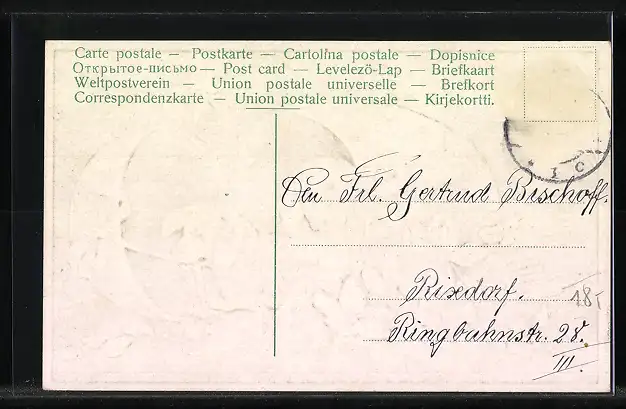 Carte postale — Postkarte — Cartolina postale — Dopisnice
Открытое-письмо — Post card — Levelező-Lap — Briefkaart
Weltpostverein — Union postale universelle — Brefkort
Correspondenzkarte — Union postale universale — Kirjekortti.
Frl. Gertrud Bischoff.
Rixdorf.
Ringbahnstr. 28.
III.